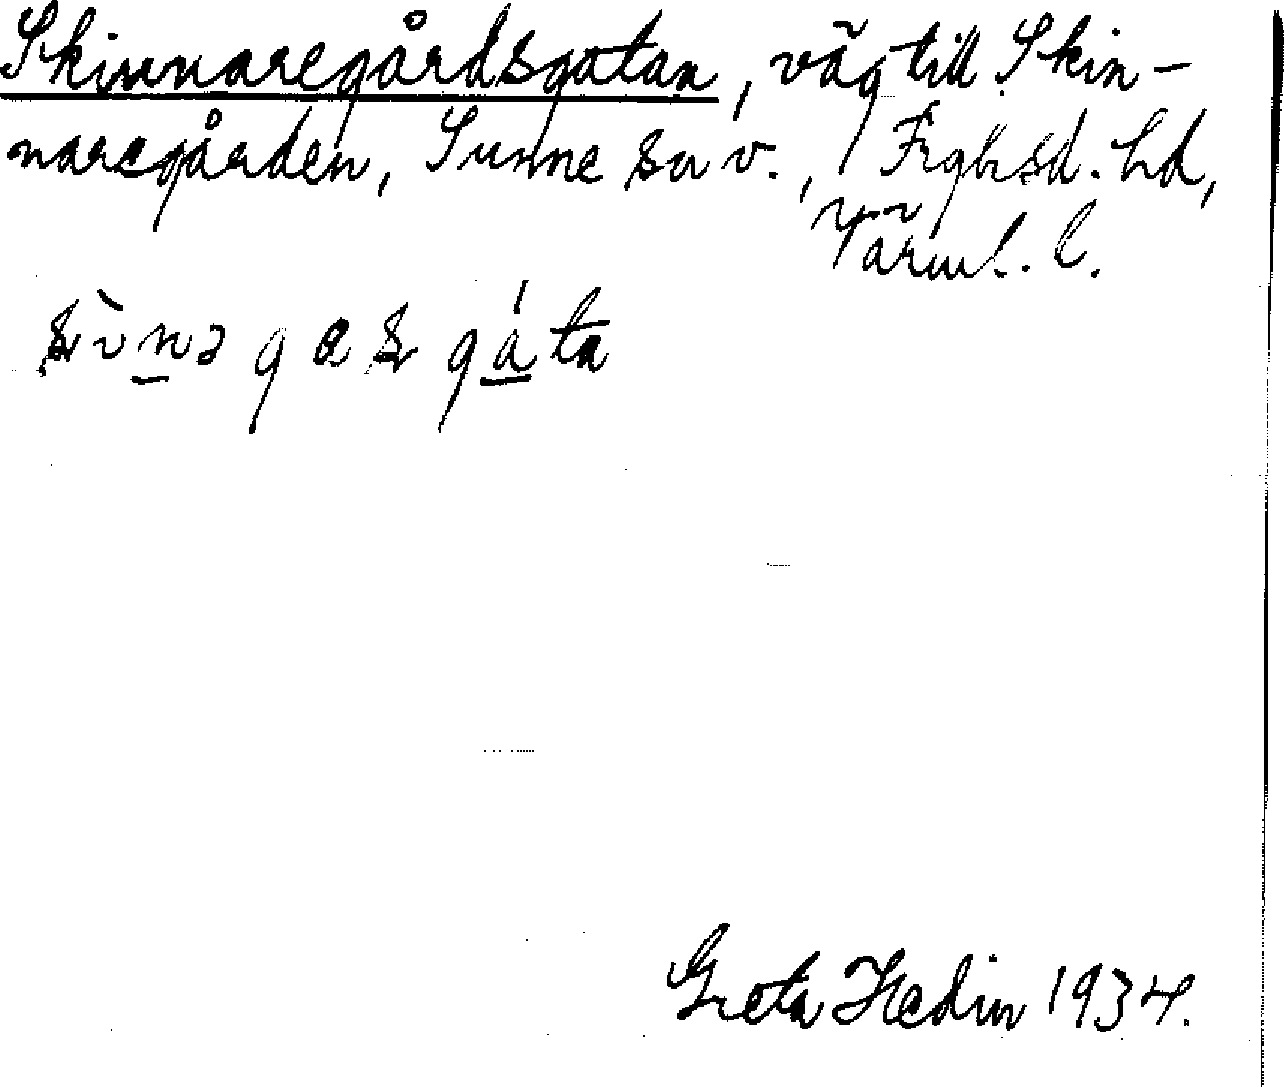 Skinnaregårdsgatan, väg till Skin-
naregården, Sunne sn v., Frybsd. hd,
Värml. l.
Greta Hedin 1934.